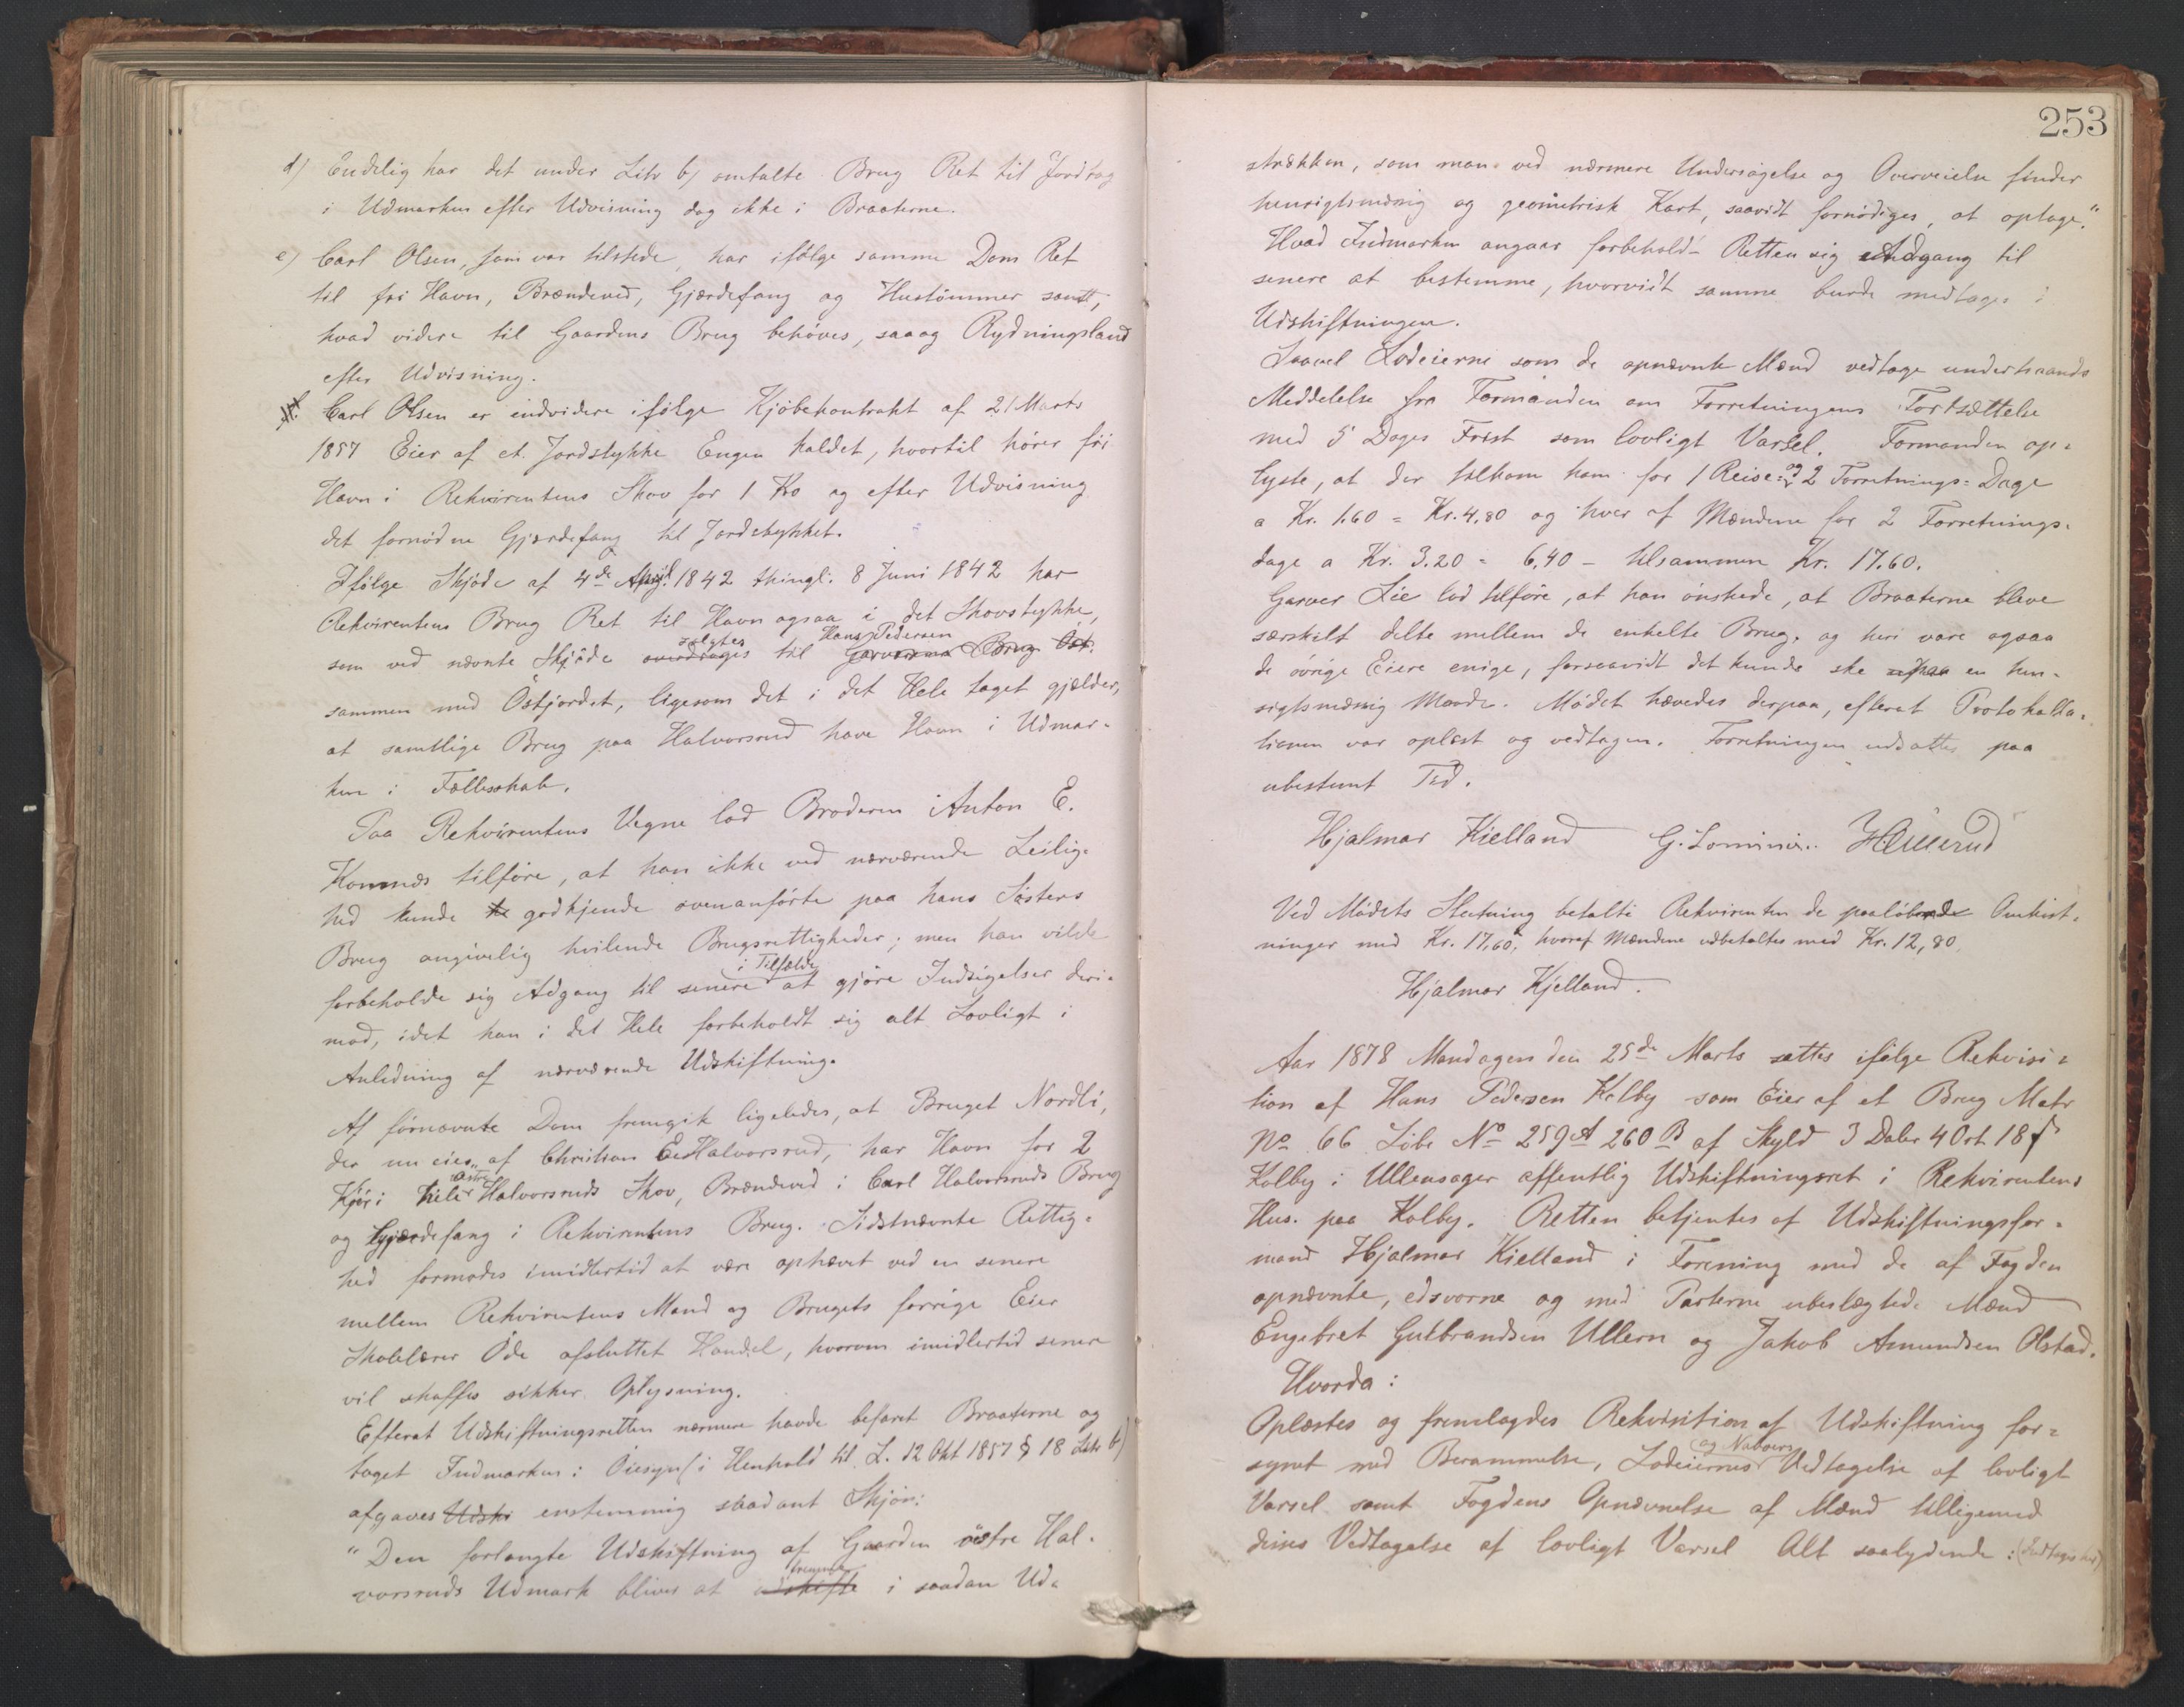 d) Endelig har det under Litr b) omtalte Brug Ret til Jordtag
i Udmarken efter Udvisning dog ikke i Braaterne.
e) Carl Olsen, som var tilstede, har ifølge samme Dom Ret
til fri Havn, Brændeved, Gjærdefang og Hustømmer samt,
hvad videre til Gaardens Brug behöves, saaog Rydningsland
efter Udvisning.
Carl Olsen er endvidere ifölge Kjöbekontrakt af 21 Marts
1857 Eier af et Jordstykke Engen kaldet, hvortil hörer fri
Havn i Rekvirentens Skov for 1 Ko og efter Udvisning
det fornödne Gjærdefang til Jordstykket.
Ifölge Skjöde af 4de April 1842 thingl. 8 Juni 1842 har
Rekvirentens Brug Ret til Havn ogsaa i det Skovstykke,
som ved nævnte Skjöde overdrages solgtes til Garveren Brug Öst. Hans Pedersen
sammen med Östjordet, ligesom det i det Hele taget gjælder,
at samtlige Brug paa Halvorsrud have Havn i Udmar-
ken i Fællesskab.
Paa Rekvirentens Vegne lod Broderen Anton E.
Komnæs tilföre, at han ikke ved nærværende Leilig-
hed kunde godkjende ovenanförte paa hans Søsters
Brug angivelig hvilende Brugsrettigheder; men han vilde
forbeholde sig Adgang til senere i Tilfælde at gjöre Indsigelser deri-
mod, idet han i det Hele forbeholdt sig alt Lovligt i
Anledning af nærværende Udskiftning.
Af förnævnte Dom fremgik ligeledes, at Bruget Nordli,
der nu eies af Christian E. Halvorsrud, har Havn for 2
Kjör i hele Østre Halvorsruds Skov, Brændeved i Carl Halvorsruds Brug
og Gjærdefang i Rekvirentens Brug. Sidstnævnte Rettig-
hed formodes imidlertid at være ophævet ved en senere
mellem Rekvirentens Mand og Brugets forrige Eier
Skolelærer Öde afsluttet Handel, hvorom imidlertid senere
vil skaffes sikker Oplysning.
Efterat Udskiftningsretten nærmere havde befaret Braaterne og
taget Indmarken i Öiesyn (i Henhold til L. 12 Okt 1857 § 18 Litr b)
afgaves Udski enstemmig saadant Skjön:
"Den forlangte Udskiftning af Gaarden östre Hal-
vorsruds Udmark bliver at udskifte fremme i saadan Ud-
253
strækken, som man ved nærmere Undersögelse og Overveielse finder
hensigtsmæssig og geometrisk Kart, saavidt fornödiges, at optage."
Hvad Indmarken angaar forbeholdt Retten sig Adgang til
senere at bestemme, hvorvidt samme burde medtages i
Udskiftningen.
Saavel Lodeierne som de opnævnte Mænd vedtoge underhaands
Meddelelse fra Formanden om Forretningens Fortsættelse
med 5 Dages Frist som lovligt Varsel. Formanden op-
lyste, at der tilkom ham for 1 Reise- og 2 Forretnings-Dage
a Kr. 1.60 = Kr. 4,80 og hver af Mændene for 2 Forretnings-
dage a Kr. 3.20 = 6,40 - tilsammen Kr. 17.60.
Garver Lie lod tilföre, at han önskede, at Braaterne bleve
særskilt delte mellem de enkelte Brug, og heri vare ogsaa
de övrige Eiere enige, forsaavidt det kunde ske paa en hen-
sigtsmæssig Maade. Mödet hævedes derpaa, efterat Protokolla-
tionen var oplæst og vedtagen. Forretningen udsattes paa
ubestemt Tid.
Hjalmar Kielland
Ved Mödets Slutning betalte Rekvirenten de paalöbende Omkost-
ninger med Kr. 17,60, hvoraf Mændene udbetaltes med Kr. 12,80.
Hjalmar Kjelland.
Aar 1878 Mandagen den 25de Marts sattes ifölge Rekvisi-
tion af Hans Pedersen Kolby som Eier af et Brug Matr
No 66 Löbe No 259 A 260 B af Skyld 3 Daler 4 Ort 18 ß
Kolby i Ullensager offentlig Udskiftningsret i Rekvirentens
Hus paa Kolby. Retten betjentes af Udskiftningsfor-
mand Hjalmar Kielland i Forening med de af Fogden
opnævnte, edsvorne og med Parterne ubeslægtede Mænd
Engebret Gulbrandsen Ullern og Jakob Amundsen Olstad.
Hvorda:
Oplæstes og fremlagdes Rekvisition af Udskiftning for-
synet med Berammelse, Lodeiernes og Naboers Vedtagelse af lovligt
Varsel samt Fogdens Opnævnelse af Mænd tilligemed
disses Vedtagelse af lovligt Varsel Alt saalydende: (Indtages her)